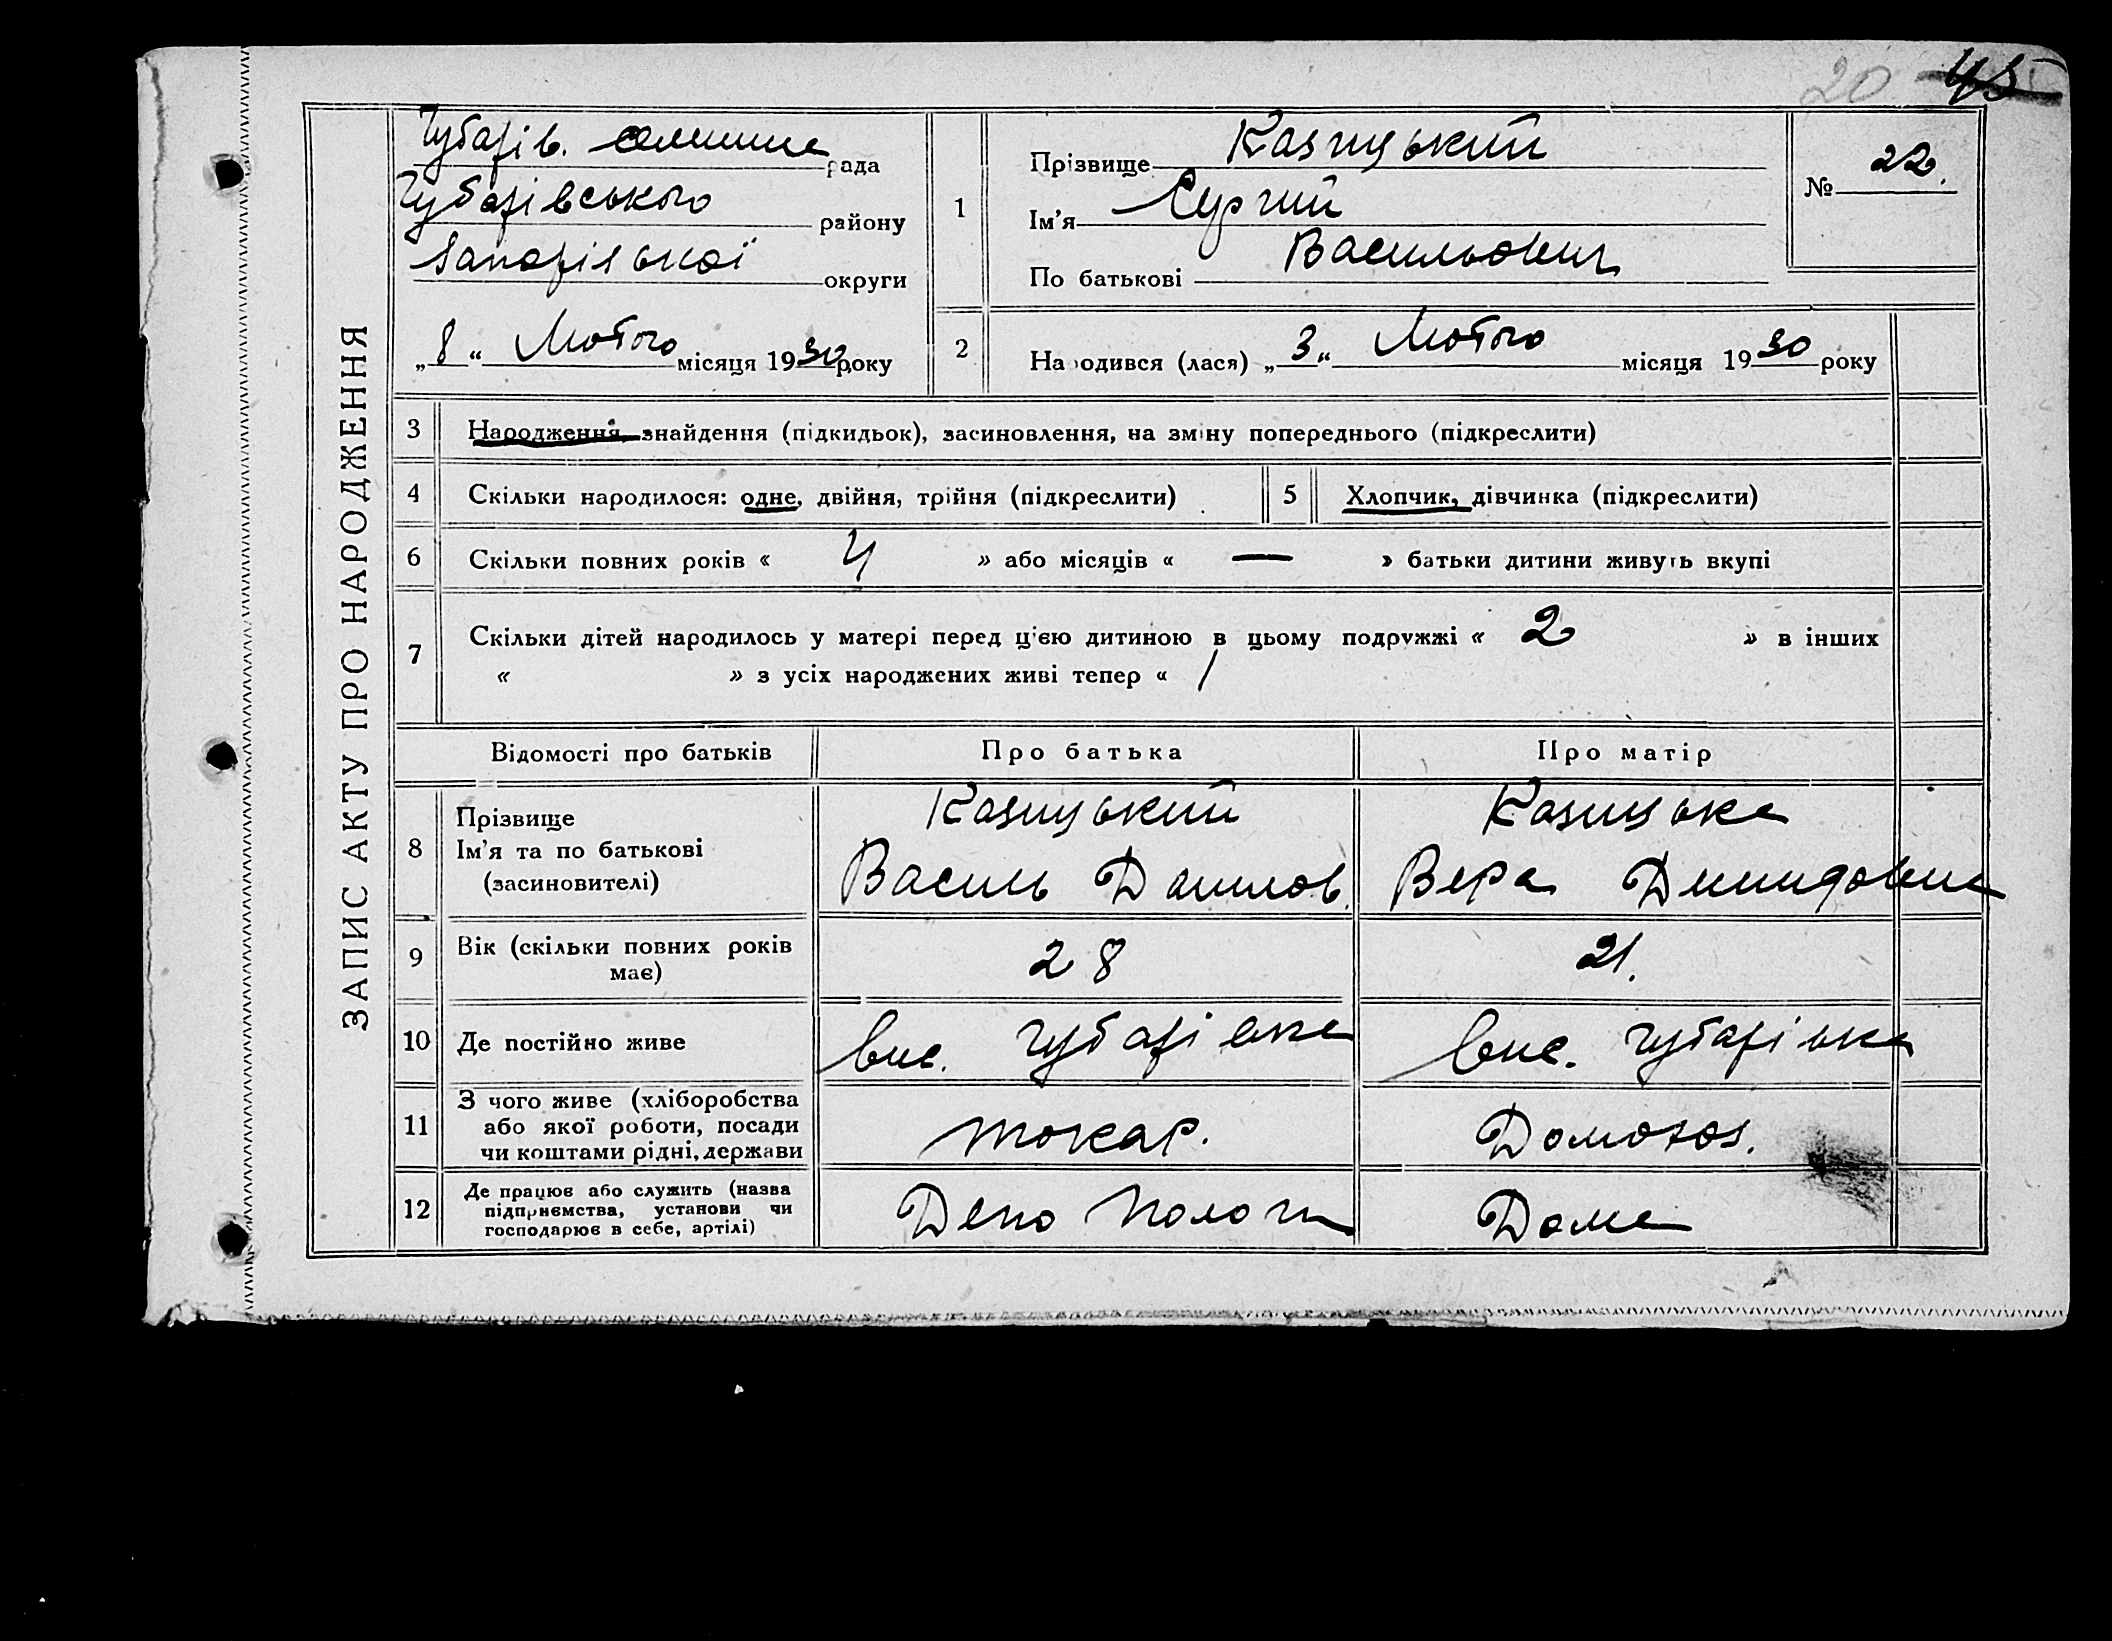 20 45
ЗАПИС АКТУ ПРО НАРОДЖЕННЯ
Чубарів. селищна рада
Чубарівського району
Запорізької округи
„8“ Лютого місяця 1930 року
1
Прізвище Казицький
Ім’я Сургий
По батькові Васильович
№ 22.
2
Народився (лася) „3“ Лютого місяця 1930 року
3 Народження, знайдення (підкидьок), засиновлення, на зміну попереднього (підкреслити)
4 Скільки народилося: одне, двійня, трійня (підкреслити)
5 Хлопчик, дівчинка (підкреслити)
6 Скільки повних років « 4 » або місяців « — » батьки дитини живуть вкупі
7 Скільки дітей народилось у матері перед ц’єю дитиною в цьому подружжі « 2 » в інших
« » з усіх народжених живі тепер « 1
Відомості про батьків Про батька Про матір
8
Прізвище
Ім’я та по батькові
(засиновителі)
Казицький
Василь Данилов.
Казицька
Вера Демидовна
9 Вік (скільки повних років
має)
28
21.
10 Де постійно живе
вис. Чубарівка
вис. Чубарівка
11
З чого живе (хліборобства
або якої роботи, посади
чи коштами рідні, держави
токар.
Домохоз.
12
Де працює або служить (назва
підприємства, установи чи
господарює в себе, артілі)
Депо Пологи
Дома